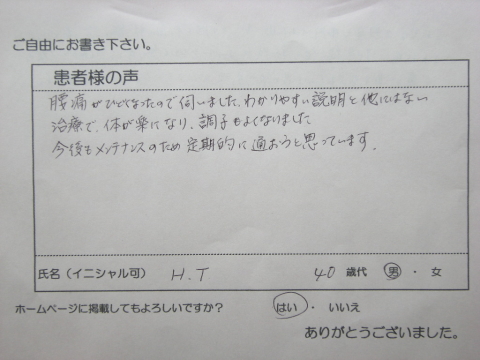 ご自由にお書き下さい。
患者様の声
腰痛がひどくなったので伺いました、わかりやすい説明と他にはない
治療で、体が楽になり、調子もよくなりました
今後もメンテナンスのため定期的に通おうと思っています。
氏名(イニシャル可) H.T 40 歳代 男 ・ 女
ホームページに掲載してもよろしいですか? はい ・ いいえ
ありがとうございました。